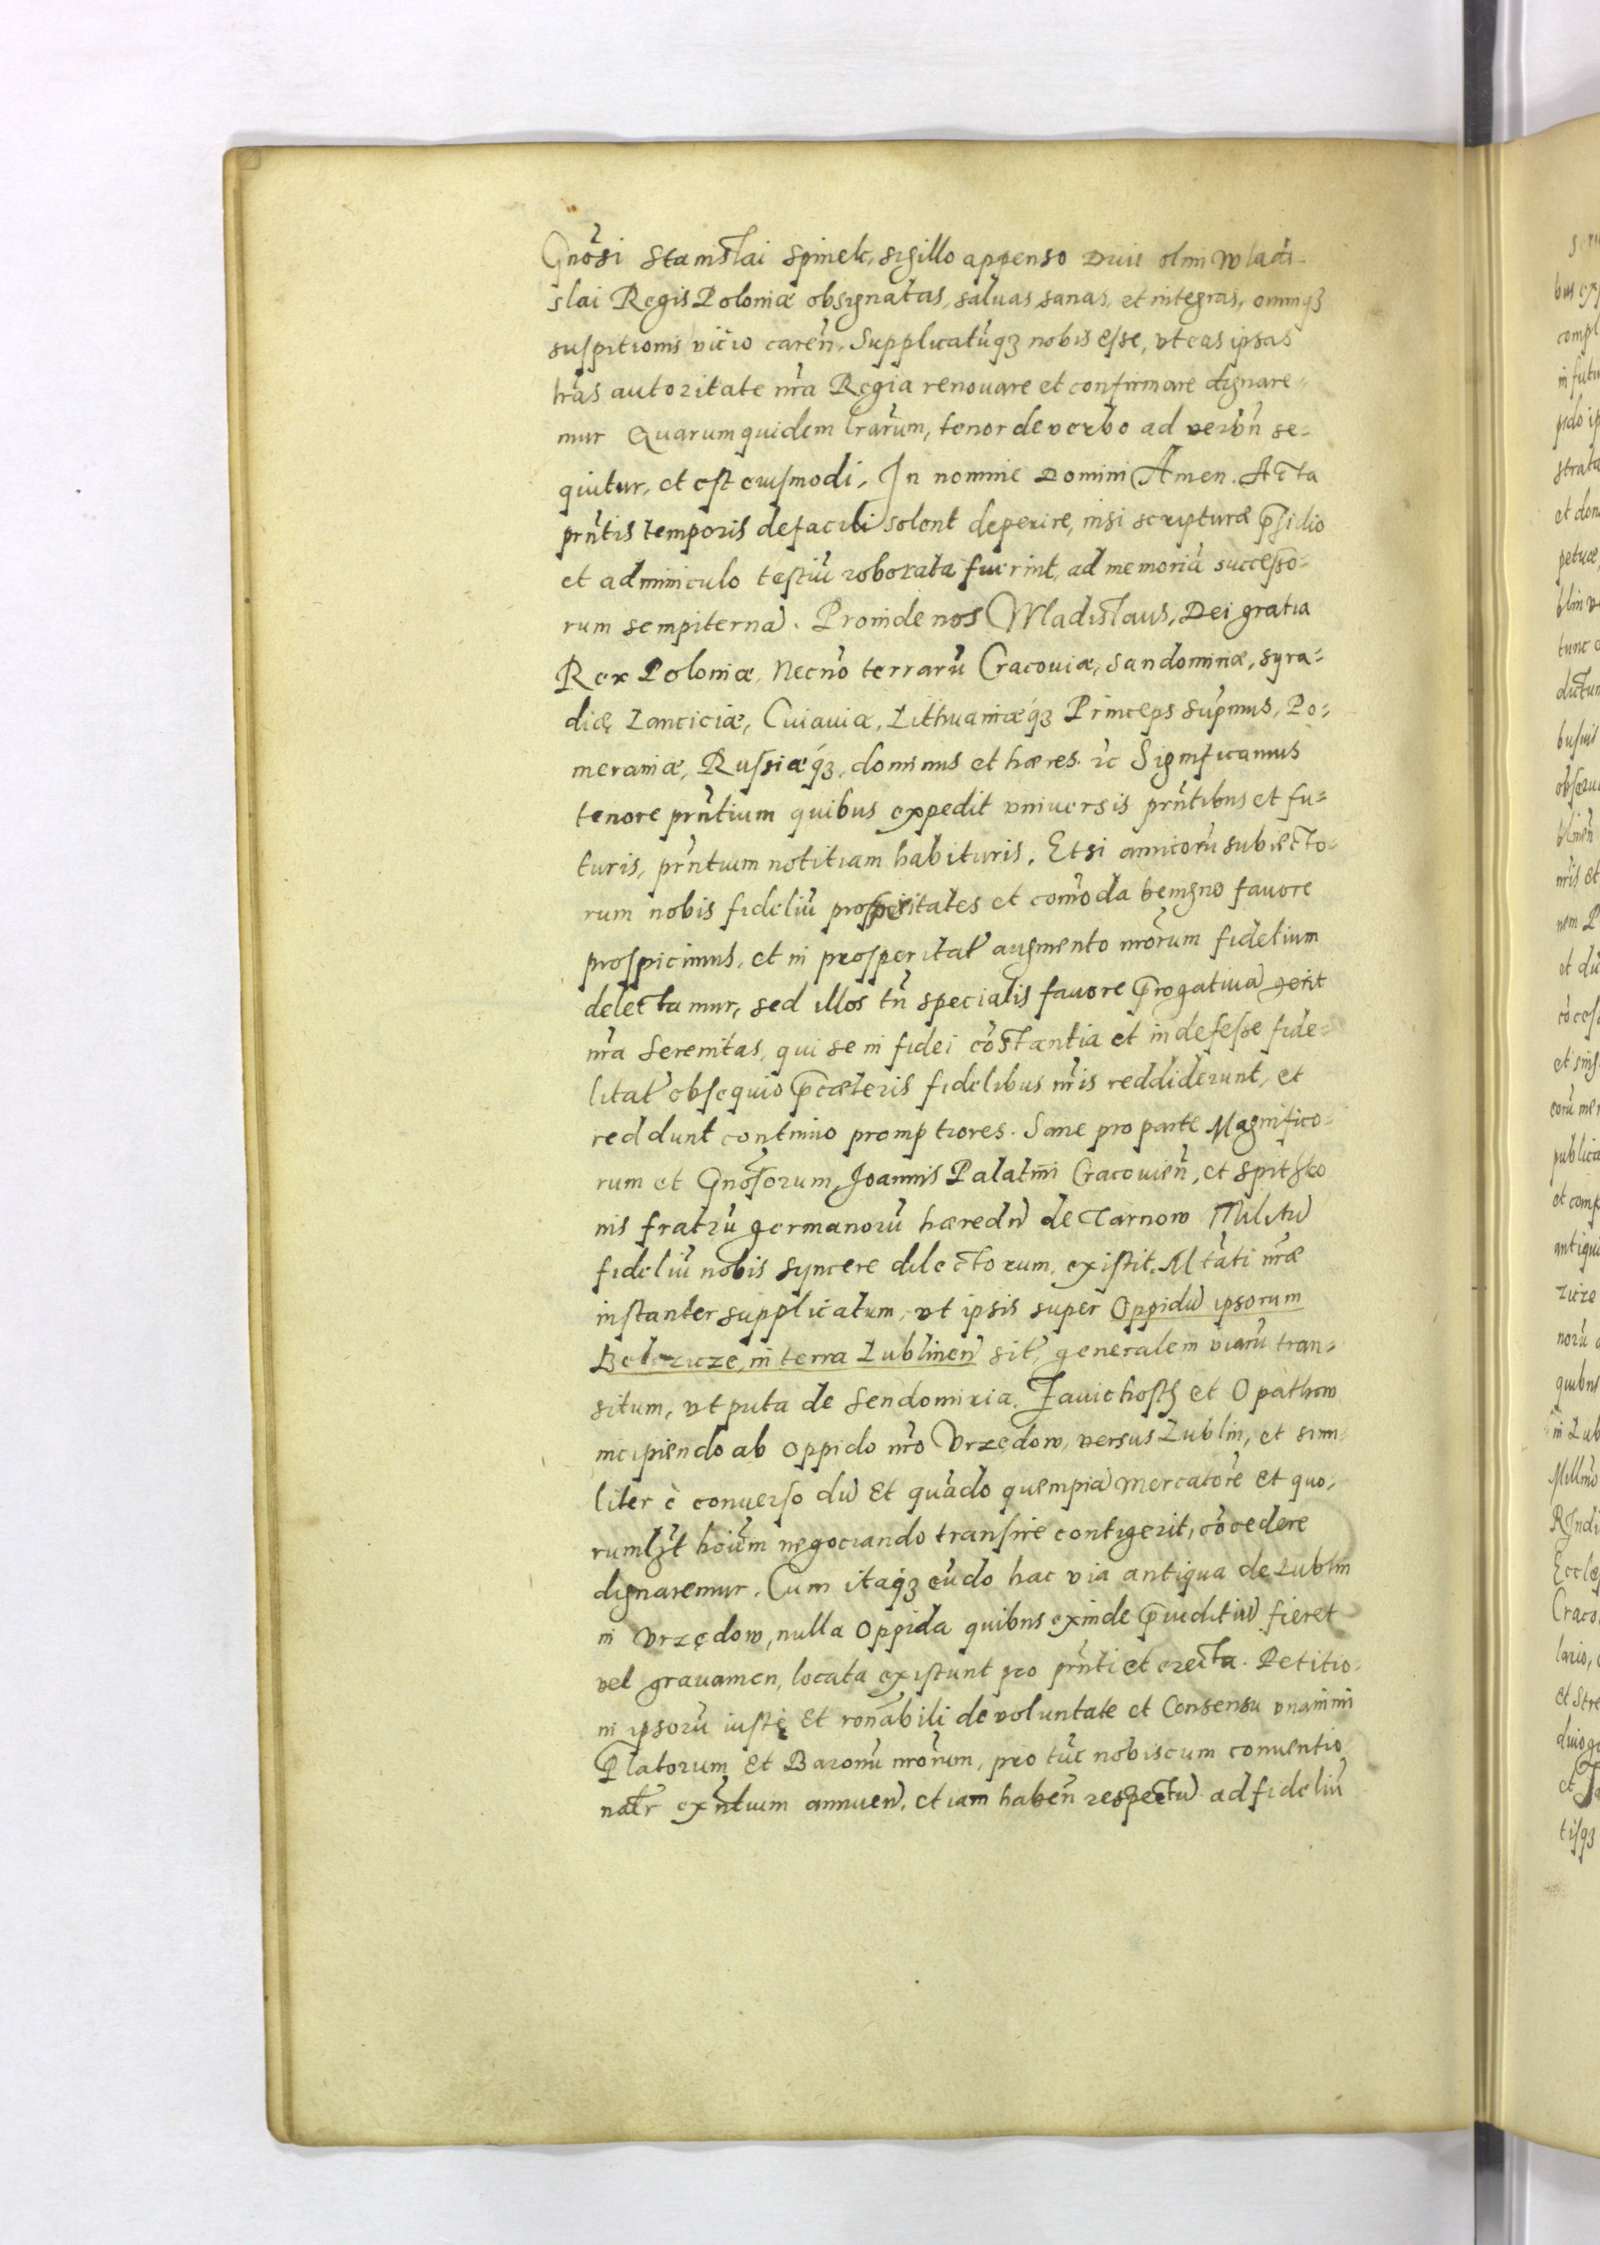 Gnõsi Stanislai Spinek, sigillo appenso Diui olim Wladi-
slai Regis Poloniæ obsignatas, saluas sanas, et integras, omniqȝ
suspitionis vicio careñ. Supplicatũqȝ nobis esse, vt eas ipsas
lr̃as autoritate nr̃a Regia renouare et confirmare dignare-
mur Quarum quidem lrãrum, tenor de verbo ad verbũ se-
quitur, et est eiusmodi. In nomine Domini Amen. Acta
prñtis temporis de facili solent deperire, nisi scripturæ p̃sidio
et adminiculo testiũ roborata fuerint, ad memoriã successo-
rum sempiternã. Proinde nos Wladislaus, Dei gratia
Rex Poloniæ, Necnõ terrarũ Cracouiæ, Sandomiriæ, Syra-
diæ Lanciciæ, Cuiauiæ, Lithuaniæqȝ Princeps Sup̃mus, Po-
meraniæ, Russiæqȝ, dominus et hæres. ꝛc Significamus
tenore prñtium quibus expedit vniuersis prñtibus et fu-
turis, prñtium notitiam habituris. Etsi amicorũ subiecto-
rum nobis fideliũ prosperitates et comõda benigno fauore
prospicimus, et in prosperitat̃ augmento nrõrum fidelium
delectamur, sed illos tñ specialis fauore p̃rogatiua gerit
nr̃a Serenitas, qui se in fidei cõstantia et indefessæ fide-
litat̃ obsequio p̃cæteris fidelibus nr̃is reddiderunt, et
reddunt continuo promptiores. Sane pro parte Magnifico-
rum et Gnõsorum, Joannis Palatini Cracouieñ, et Spitko
nis fratrũ germanorũ hæredũ de Tarnow Militũ
fideliũ nobis syncere dilectorum, existit, Mtãti nr̃æ
instanter supplicatum, vt ipsis super Oppidũ ipsorum
Belezicze, in terra Lublineñ sit̃, generalem viarũ tran-
situm, vtputa de Sendomiria, Zauichosth et Opathow
incipiendo ab oppido nr̃o Vrzędow, versus Lublin, et simi-
liter è conuerso dũ et quãdo quempiã mercatorẽ et quo-
rumlȝt hoĩum negociando transire contigerit, cõcedere
dignaremur. Cum itaqȝ eũdo hac via antiqua de Lublin
in Vrzędow, nulla Oppida quibus exinde p̃iuditiũ fieret
vel grauamen, locata existunt pro prñti et erecta. Petitio-
ni ipsorũ iustę et ronãbili de voluntate et Consensu vnanimi
P̃latorum et Baronũ nrõrum, pro tũc nobiscum conuentio
nalr̃ exñtium annueñ. etiam habeñ respectũ ad fideliũ